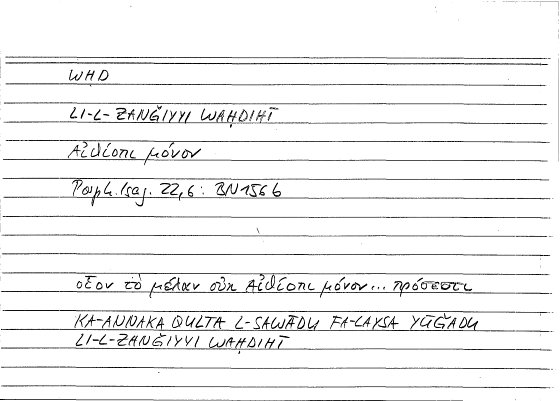 WHD
LI-L-ZANǦIYYI WAḤDIHĪ
Αἰθίοπι μόνον
Porph. Isag. 22,6: BN 156b
οἷον τὸ μέλαν οὐκ Αἰθίοπι μόνον... πρόσεστι
KA-ANNAKA QULTA L-SAWĀDU FA-LAYSA YŪǦADU
LI-L-ZANǦIYYI WAḤDIHĪ